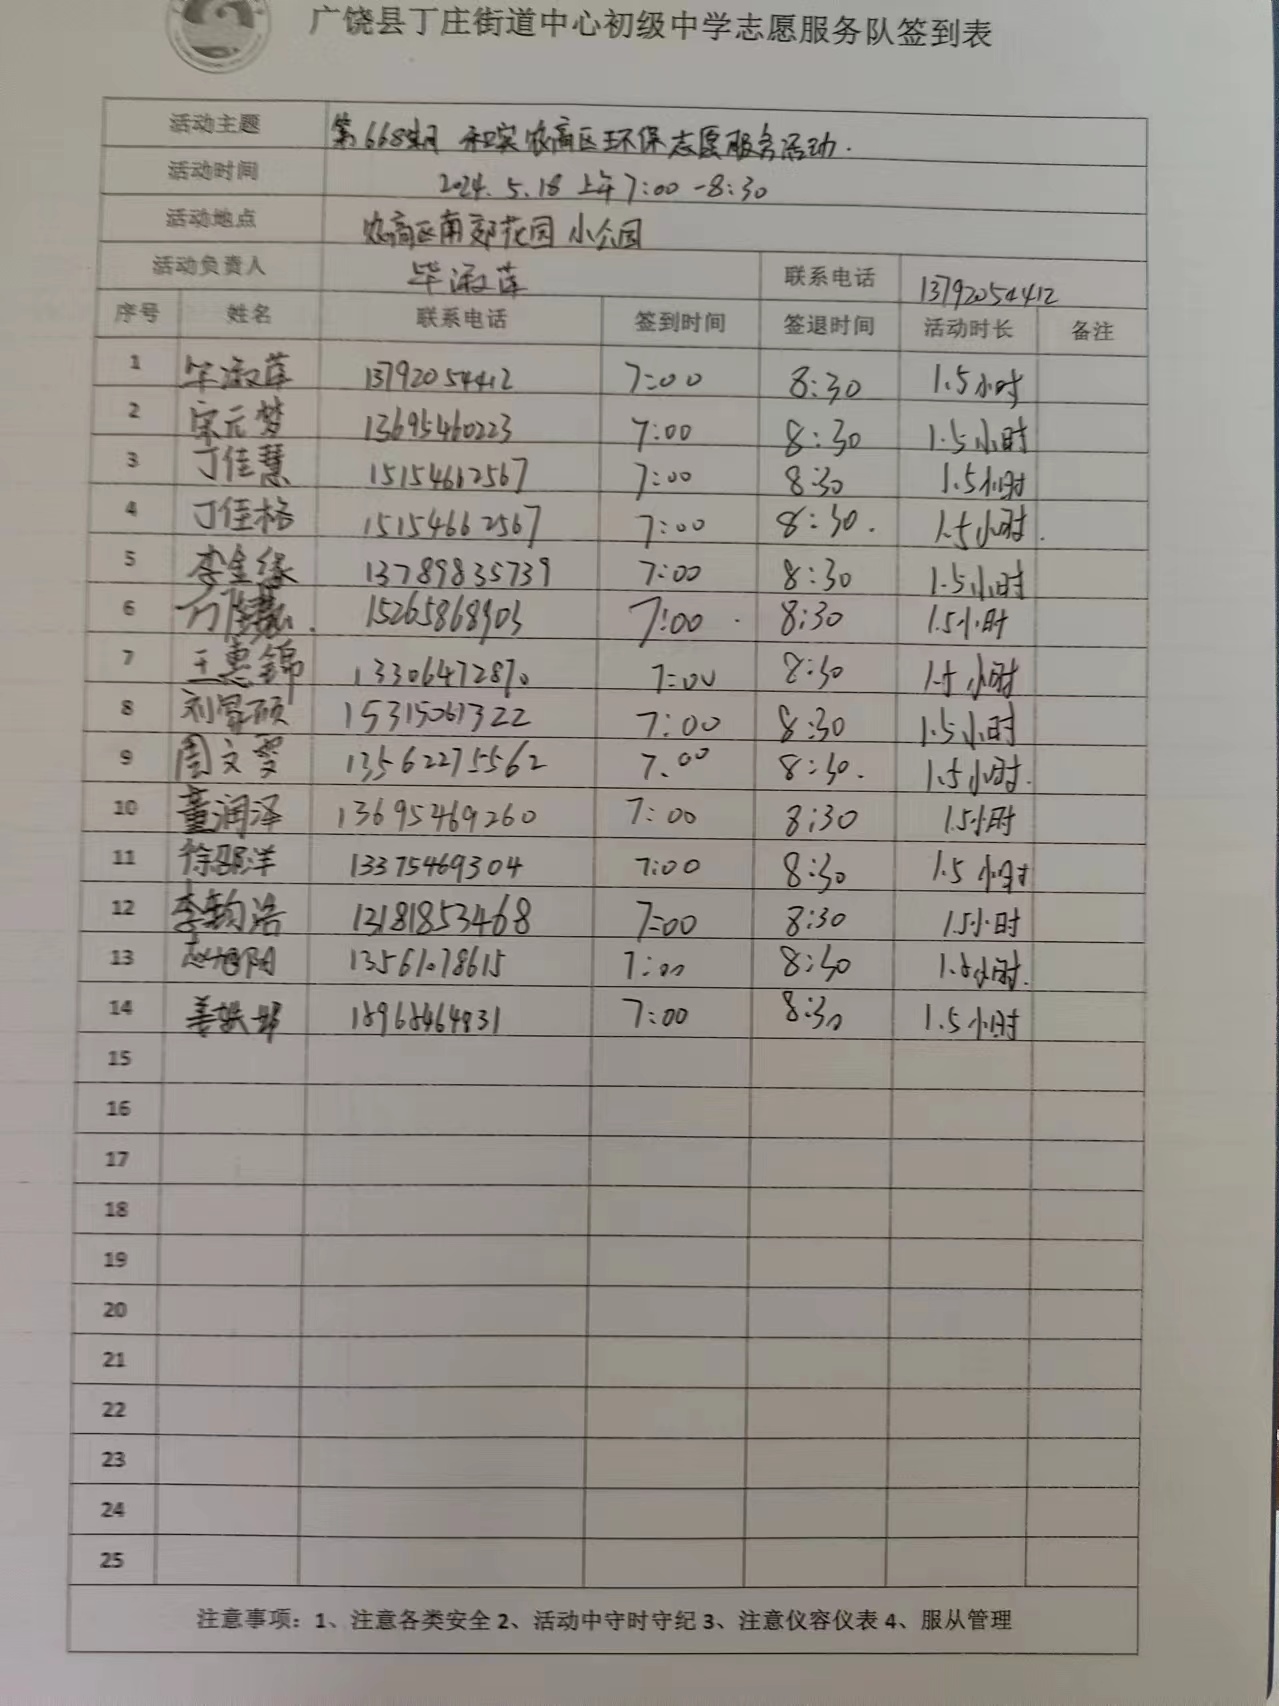 广饶县丁庄街道中心初级中学志愿服务队签到表
活动主题 第668期 和实农高区环保志愿服务活动.
活动时间 2024. 5.18 上午7:00 -8:30
活动地点 农高区南郊花园 小公园
活动负责人 毕淑莲 联系电话 13792054412
序号 姓名 联系电话 签到时间 签退时间 活动时长 备注
1 毕淑莲 13792054412 7:00 8:30 1.5小时
2 宋元梦 13695460223 7:00 8:30 1.5小时
3 丁佳慧 15154662567 7:00 8:30 1.5小时
4 丁佳格 15154662567 7:00 8:30. 1.5小时.
5 李金缘 13789835739 7:00 8:30 1.5小时
6 15265868903 7:00 8:30 1.5小时
7 王惠锦 13306472870 7:00 8:30 1.5小时
8 刘晋硕 15315061322 7:00 8:30 1.5小时
9 周文雯 13562275562 7.00 8:30. 1.5小时.
10 董润泽 13695469260 7:00 8:30 1.5小时
11 徐邵洋 13375469304 7:00 8:30 1.5小时
12 李钧浩 13181853468 7:00 8:30 1.5小时
13 赵旭阳 13561078615 7:00 8:30 1.5小时.
14 姜 18968464831 7:00 8:30 1.5小时
15
16
17
18
19
20
21
22
23
24
25
注意事项：1、注意各类安全 2、活动中守时守纪 3、注意仪容仪表 4、服从管理